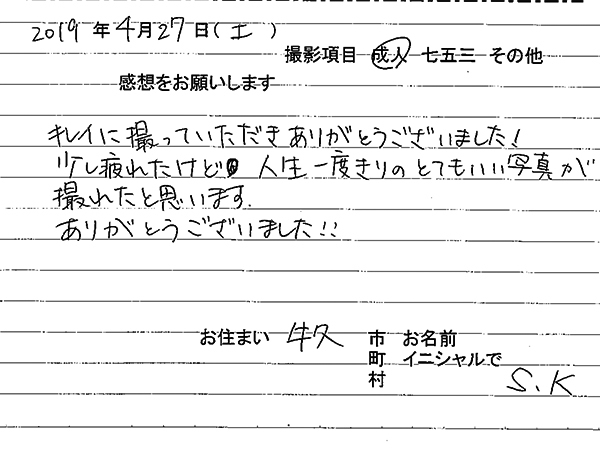 2019 年 4 月 27 日 ( 土 )
撮影項目 成人 七五三 その他
感想をお願いします
キレイに撮っていただきありがとうございました!
少し疲れたけど 人生一度きりのとてもいい写真が
撮れたと思います.
ありがとうございました!!
お住まい 牛久 市 お名前
町 イニシャルで
村 S.K